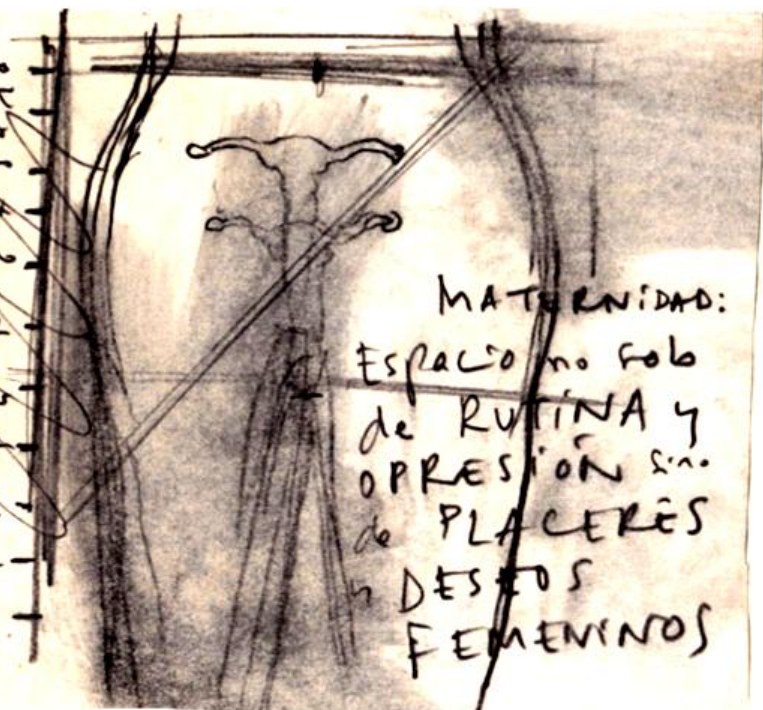 MATERNIDAD:
Espacio no solo
de RUTINA y
OPRESIÓN sino
de PLACERES
y DESEOS
FEMENINOS